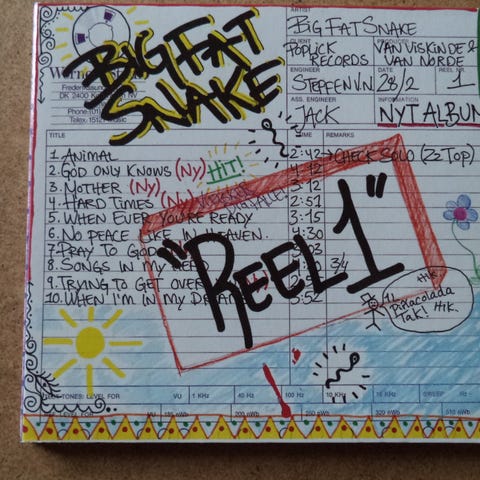 BIG FAT
SNAKE
DK 2400
ARTIST
BIG FAT SNAKE
CLIENT
POPLICK
RECORDS
PRODUCER
VAN VISKINDE &
VAN NORDE
ENGINEER
STEFFEN V.N.
DATE
28/2
REEL NR.
1
ASS. ENGINEER
JACK
INFORMATION
NYT ALBUM
TITLE
TIME
REMARKS
1. ANIMAL 2:42 → CHECK SOLO (ZZ TOP)
2. GOD ONLY KNOWS (NY) HIT! 4:12
3. MOTHER (NY) 3:12
4. HARD TIMES (NY) 2:51
5. WHEN EVER YOU'RE READY 3:15
6. NO PEACE LIKE IN HEAVEN. 4:30
7. PRAY TO GOD :03
8. SONGS IN MY HEAD 34
9. TRYING TO GET OVER
10. WHEN I'M IN MY DREAMS 5:52
"REEL 1"
Hik
Piñacolada
Tak! Hik.
TONES: LEVEL FOR VU 1 KHz 40 Hz 100 Hz 10 KHz 16 KHz
LEVEL FOR VU 185 nWb 250 nWb 320 nWb 510 nWb